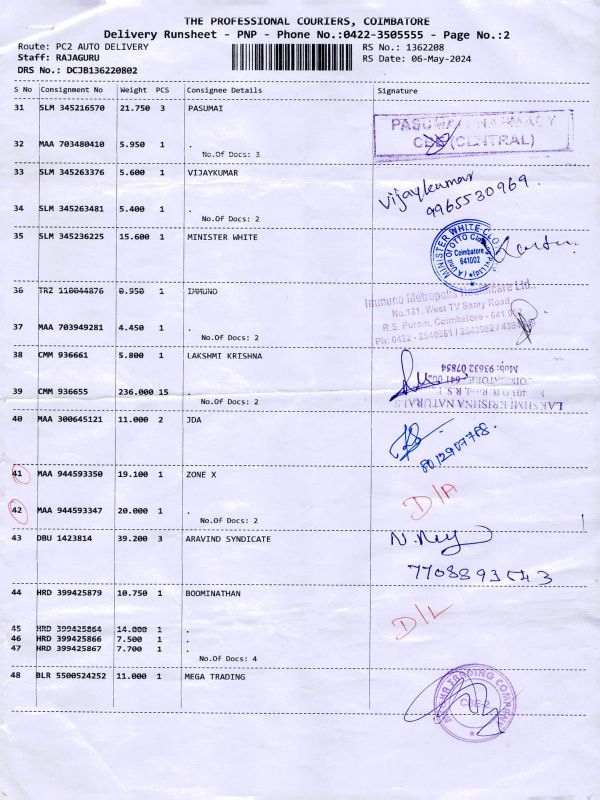 THE PROFESSIONAL COURIERS, COIMBATORE
Delivery Runsheet - PNP - Phone No.:0422-3505555 - Page No.:2
Route: PC2 AUTO DELIVERY RS No.: 1362208
Staff: RAJAGURU RS Date: 06-May-2024
DRS No.: DCJB136220802
S No Consignment No Weight PCS Consignee Details Signature
31 SLM 345216570 21.750 3 PASUMAI
PASUMAI PHARMACY
32 MAA 703480410 5.950 1 . CBE (CENTRAL)
No.Of Docs: 3
33 SLM 345263376 5.600 1 VIJAYKUMAR
Vijaykumar
9965530969.
34 SLM 345263481 5.400 1 .
No.Of Docs: 2
35 SLM 345236225 15.600 1 MINISTER WHITE
MINISTER WHITE
Coimbatore
641002
36 TRZ 110044876 0.950 1 IMMUNO
Immuno Metropolis Healthcare Ltd.,
No.161, West TV Samy Road
R.S. Puram, Coimbatore - 641 002
37 MAA 703949281 4.450 1 .
No.Of Docs: 2
38 CMM 936661 5.800 1 LAKSHMI KRISHNA
LAKSHMI KRISHNA NATURALS
Mob: 93632 07854
39 CMM 936655 236.000 15 .
No.Of Docs: 2
40 MAA 300645121 11.000 2 JDA
8012907768.
41 MAA 944593350 19.100 1 ZONE X
D/A
42 MAA 944593347 20.000 1 .
No.Of Docs: 2
43 DBU 1423814 39.200 3 ARAVIND SYNDICATE
7708893543
44 HRD 399425879 10.750 1 BOOMINATHAN
D/L
45 HRD 399425864 14.000 1 .
46 HRD 399425866 7.500 1 .
47 HRD 399425867 7.700 1 .
No.Of Docs: 4
48 BLR 5500524252 11.000 1 MEGA TRADING
TRADING COMPANY
CBE-2